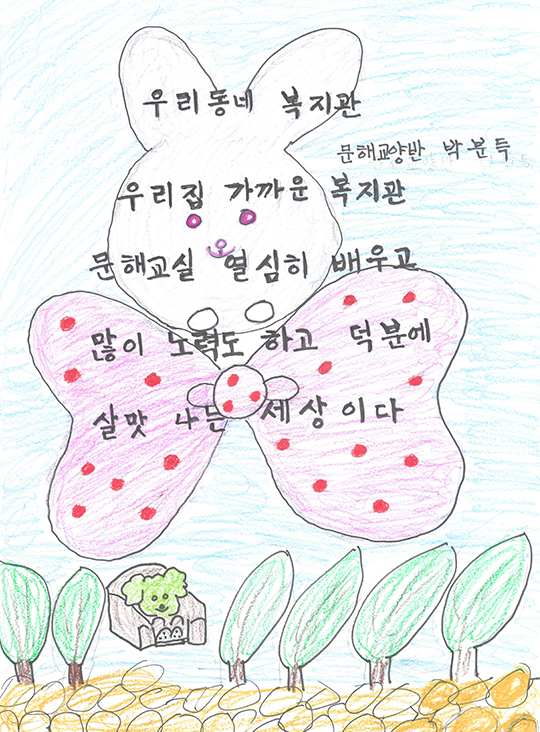 우리동네 복지관
문해교양반 박분득
우리집 가까운 복지관
문해교실 열심히 배우고
많이 노력도 하고 덕분에
살맛 나는 세상이다